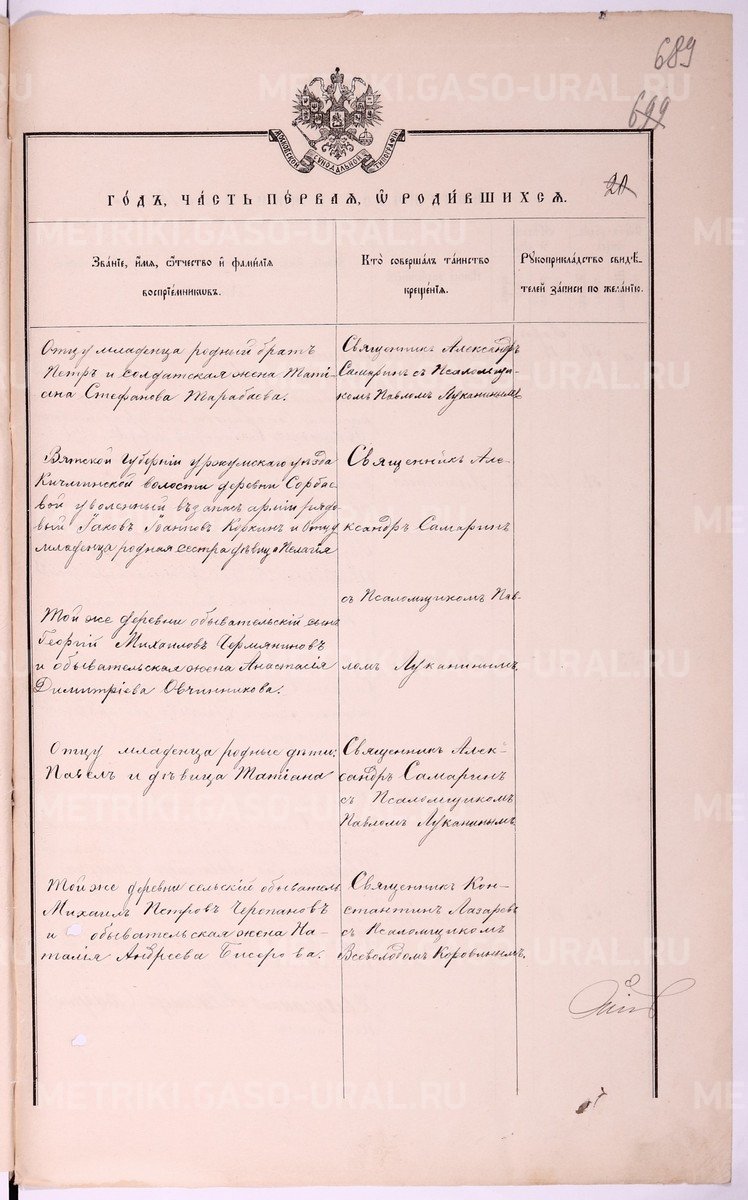 689
699
20
МОСКОВСКОЙ СѴНОДАЛЬНОЙ ТИПОГРАФІИ
ГО́ДЪ, ЧА́СТЬ ПЕ́РВАЯ, Ѽ РОДИ́ВШИХСѦ.
Зва́нїе, и҆́мѧ, ѻ҆́тчество и҆ фамѝлїѧ
воспрїе́мниковъ.
Кто̀ соверша́лъ та́инство
креще́нїѧ.
Рꙋкоприкла́дство свидѣ́-
телей за́писи по жела́нїю.
Отцу младенца родный братъ
Петръ и солдатская жена Тати-
ана Стефанова Тарабаева.
Священникъ Александръ
Самаринъ съ Псаломщи-
комъ Павломъ Луканинымъ
Вятской Губерніи уржумскаго уѣзда
Кичминской волости деревни Сорба-
евой уволенный въ запасъ арміи рядо-
вый Іаковъ Іоанновъ Коркинъ и Отцу
младенца родная сестра дѣвица Пелагія
Священникъ Але-
ксандръ Самаринъ
съ Псаломщикомъ Пав-
ломъ Луканинымъ
Той же деревни обывательскій сынъ
Георгій Михаиловъ Чермяниновъ
и обывательская жена Анастасія
Димитріева Овчинникова.
Отцу младенца родные дѣти:
Павелъ и дѣвица Татіана
Священникъ Алек-
сандръ Самаринъ
съ Псаломщикомъ
Павломъ Луканинымъ
Той же деревни сельскій обыватель
Михаилъ Петровъ Черепановъ
и обывательская жена На-
талія Андреева Бисерова.
Священникъ Кон-
стантинъ Лазаревъ
съ Псаломщикомъ
Всеволодомъ Коровинымъ.
METRIKI.GASO-URAL.RU